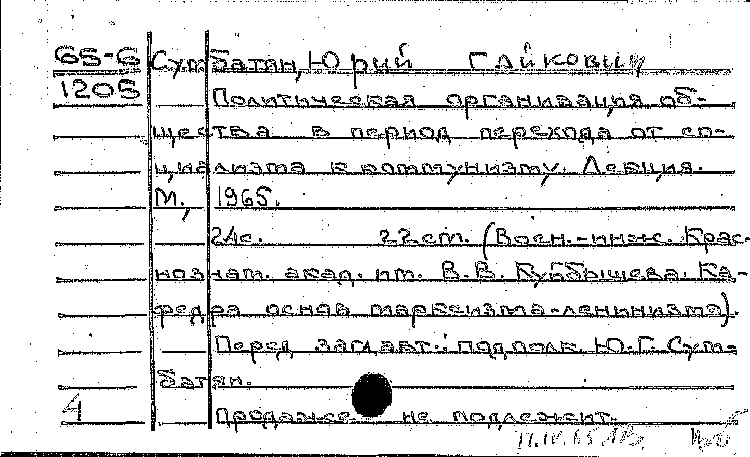 65-6 Сумбатян, Юрий Гайкович
1205
Политическая организация об-
щества в период перехода от со-
циализма к коммунизму. Лекция.
М., 1965.
24с. 22см. (Воен.-инж. Крас-
нознам. акад. им. В.В. Куйбышева. Ка-
федра основ марксизма-ленинизма).
Перед загл. авт.: подполк. Ю.Г. Сум-
батян.
4
Продаже не подлежит.
17.IV.65